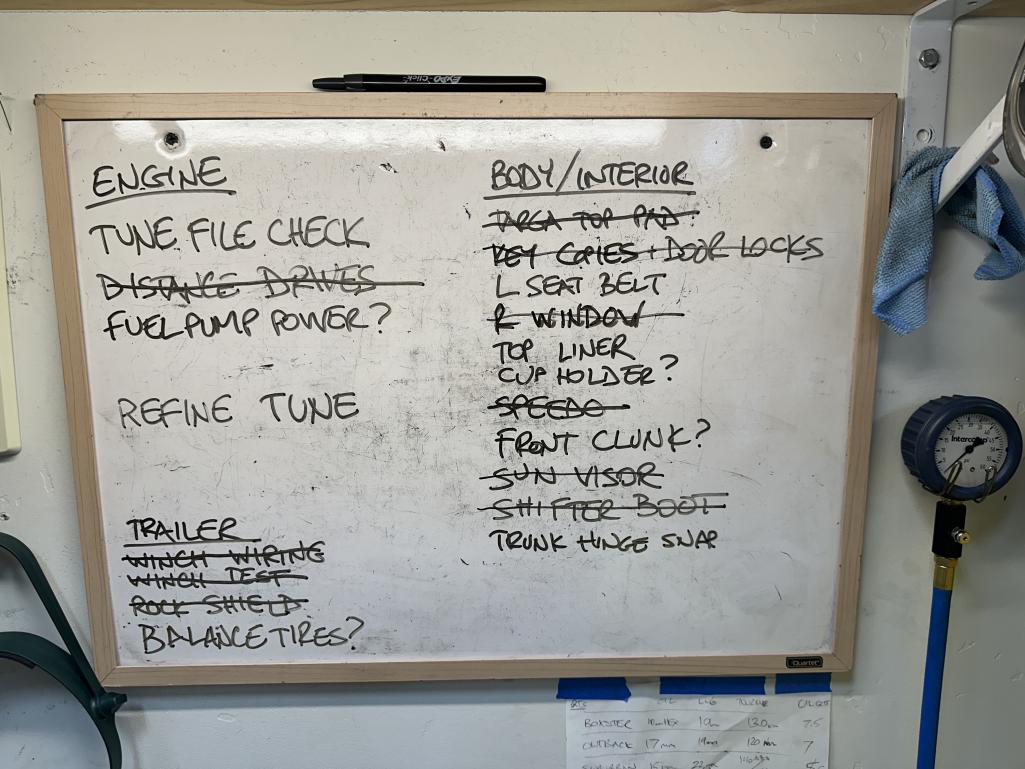 EXPO-CLICK
ENGINE
TUNE FILE CHECK
DISTANCE DRIVES
FUEL PUMP POWER?
REFINE TUNE
TRAILER
WINCH WIRING
WINCH TEST
ROCK SHIELD
BALANCE TIRES?
BODY/INTERIOR
TARGA TOP PAD
KEY COPIES + DOOR LOCKS
L SEAT BELT
R WINDOW
TOP LINER
CUP HOLDER?
SPEEDO
FRONT CLUNK?
SUN VISOR
SHIFTER BOOT
TRUNK HINGE SNAP
Quartet
Intercomp
BOXSTER 10mm 130nm 7.5
OUTBACK 17mm 19mm 120nm 7